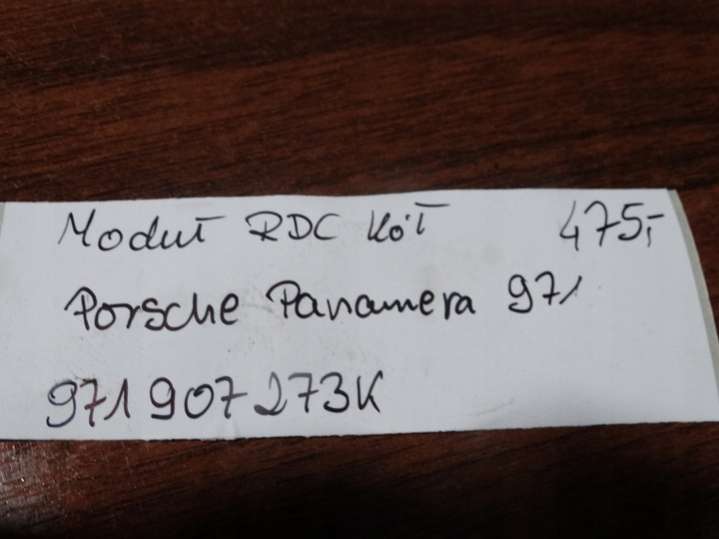 Moduł RDC kół 475,-
Porsche Panamera 971
971 907 273K